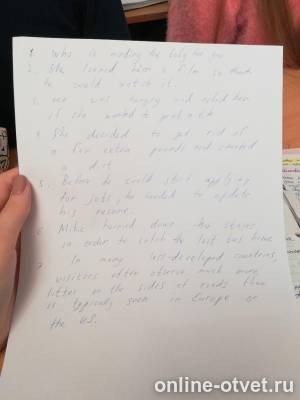 1. Who is minding the baby for you
2. She loaned him a film so that
he could watch it.
3. was hungry and asked her
if she wanted to grab a bite
4. She decided to get rid of
a few extra pounds and started
a diet
5. Before he could start applying
for jobs, he needed to update
his resume.
6. Mike turned down the stages
in order to catch the last bus home
7. In many less-developed countries,
visitors often observe much more
litter on the sides of roads than
is typically seen in Europe or
the US.
online-otvet.ru